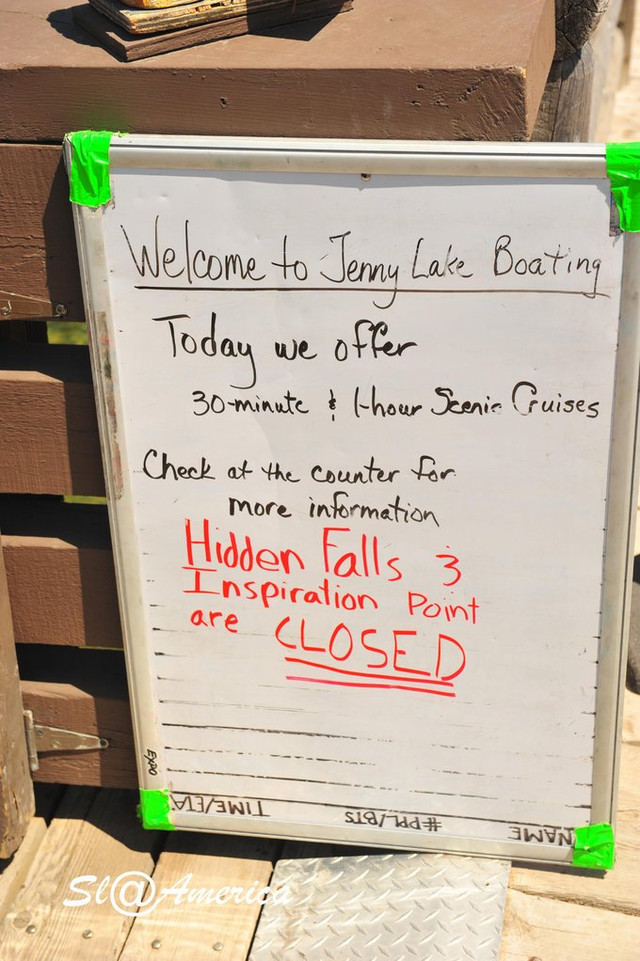 Welcome to Jenny Lake Boating
Today we offer
30-minute & 1-hour Scenic Cruises
Check at the counter for
more information
Hidden Falls &
Inspiration Point
are CLOSED
Expo
NAME #PPL/BTS TIME/ETA
Sl@America